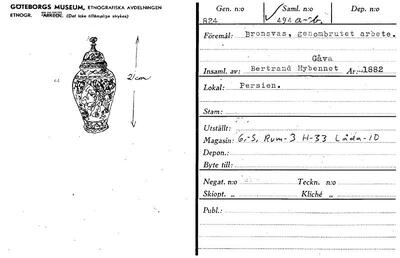 GÖTEBORGS MUSEUM, ETNOGRAFISKA AVDELNINGEN
ETNOGR. (Det icke tillämpliga strykes)
21cm
Gen. n:o Saml. n:o Dep. n:o
824 494 a-b
Föremål: Bronsvas, genombrutet arbete.
Gåva
Insaml. av: Bertrand Hybennet År: 1882
Lokal: Persien.
Stam:
Utställt:
Magasin: G:S, Rum-3 H-33 Låda-10
Depon.:
Byte till:
Negat. n:o Teckn. n:o
Skiopt. „ Kliché „
Publ.: